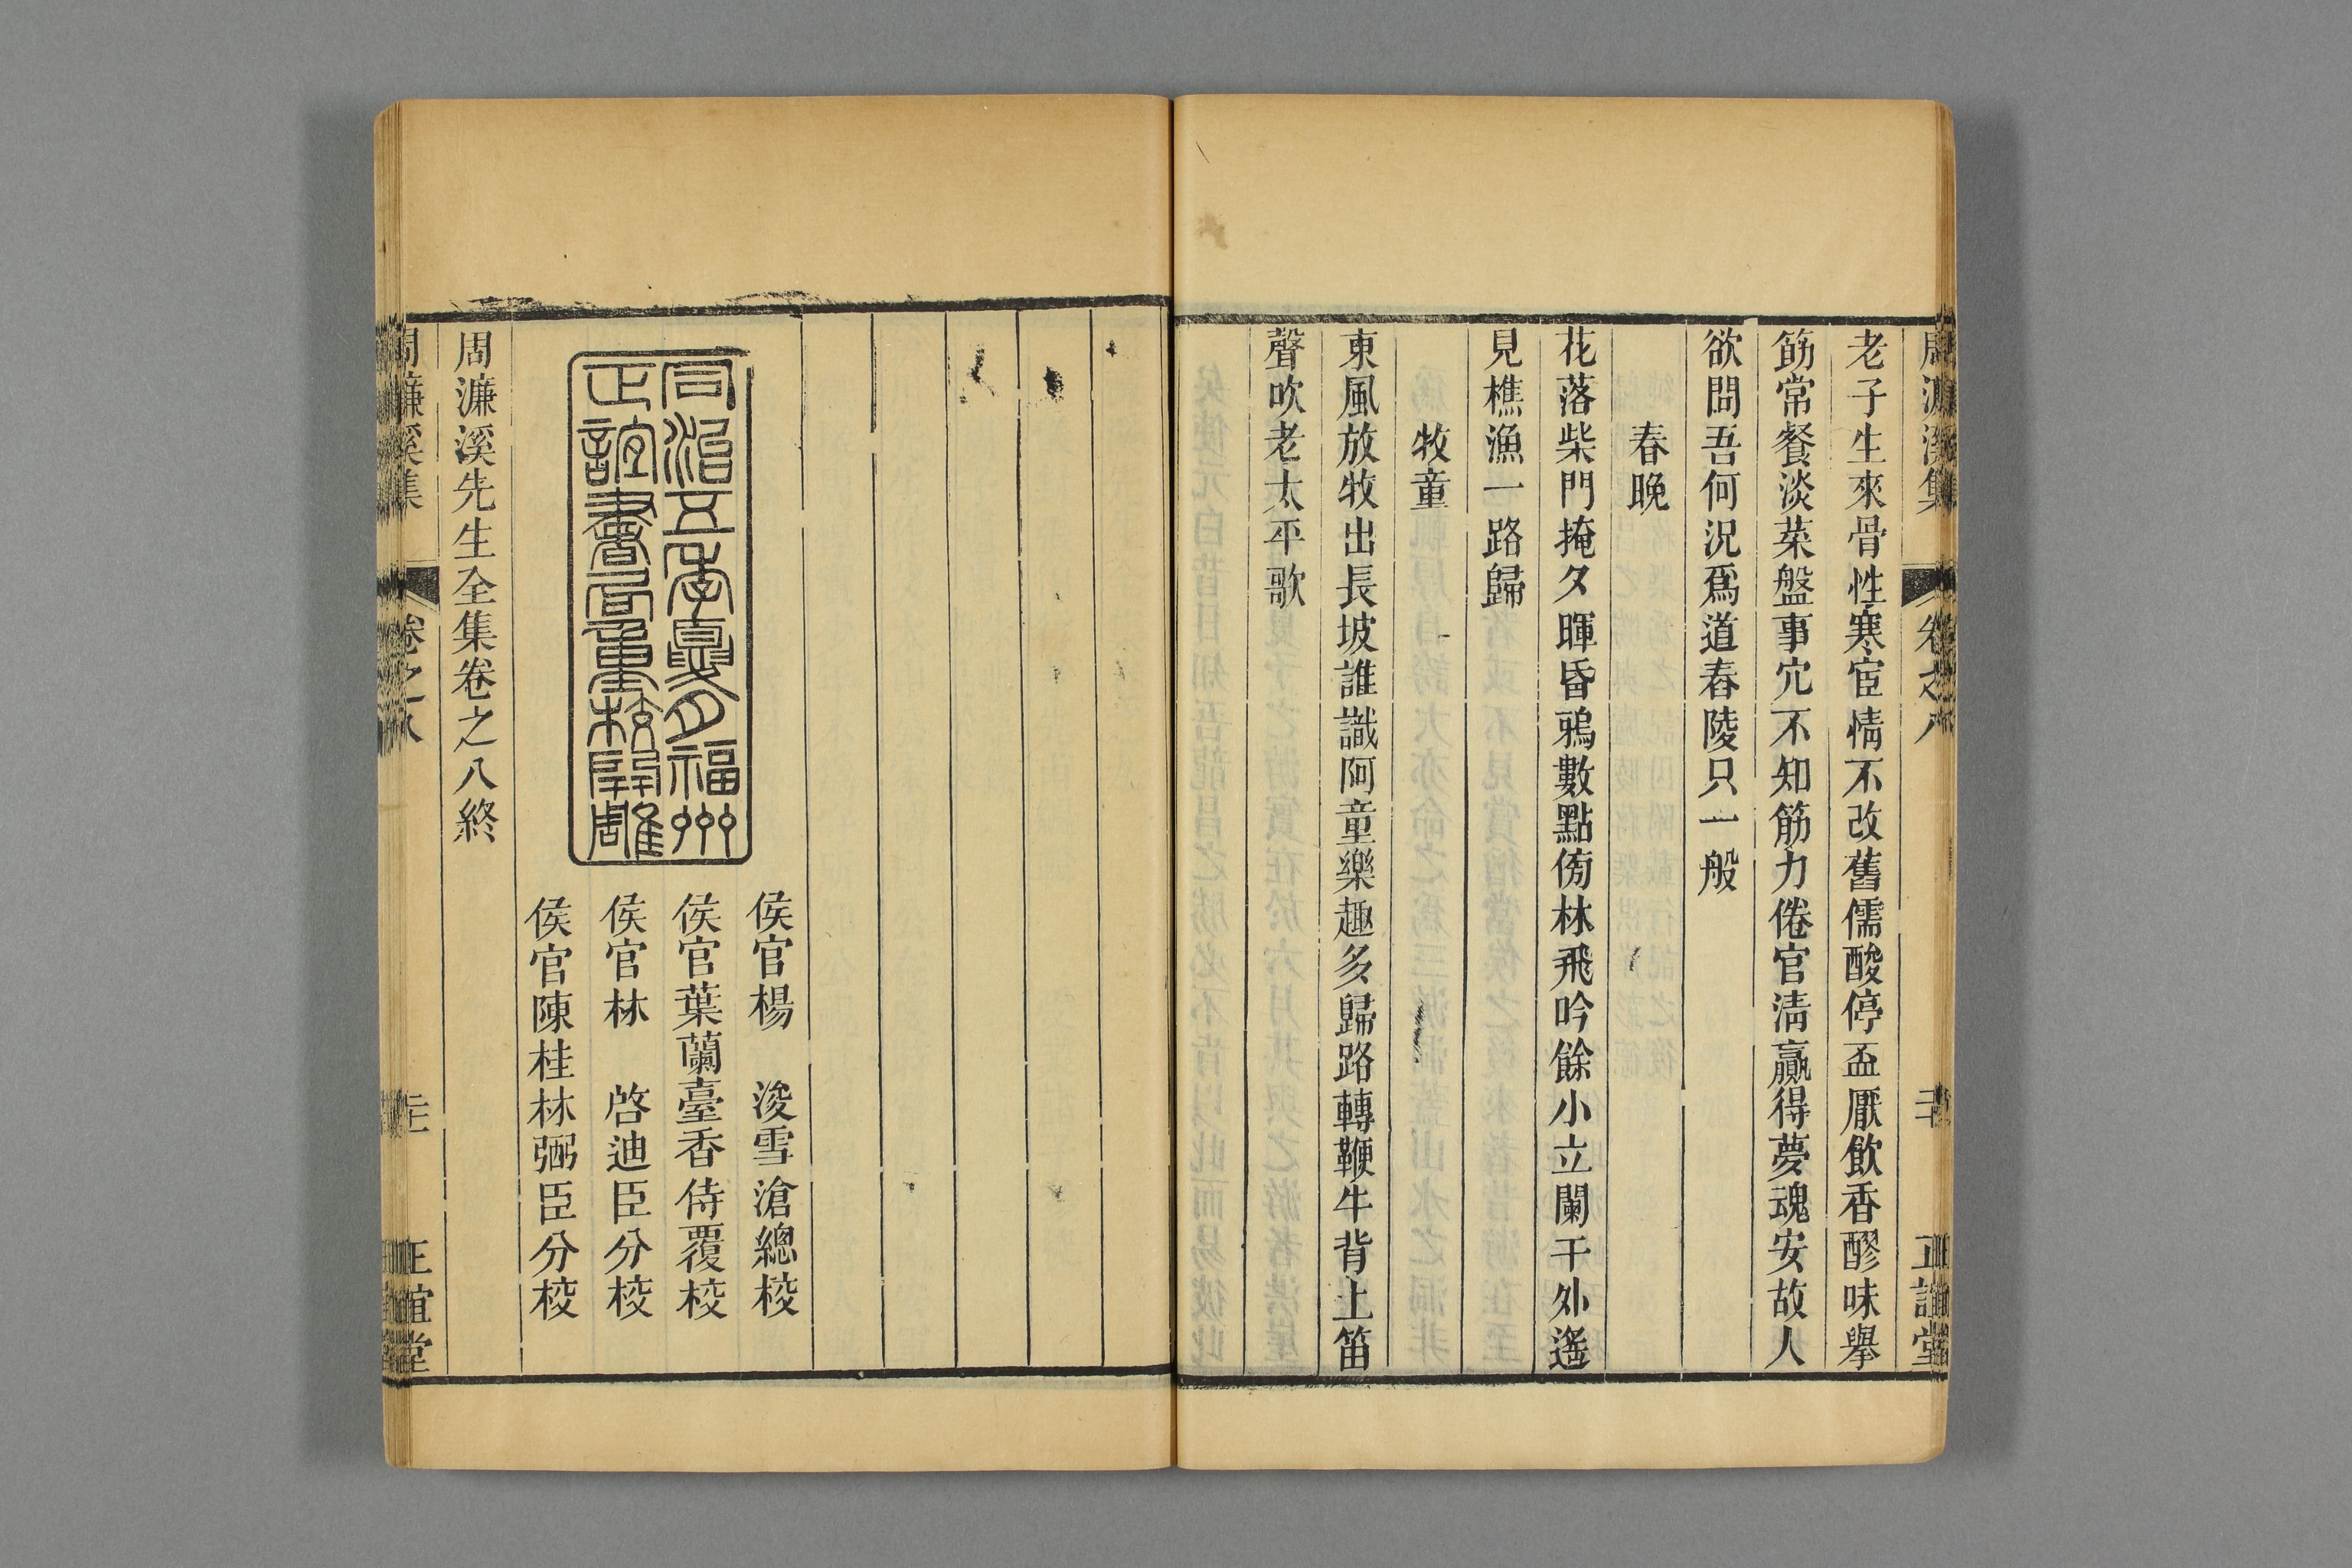 周濂溪集 卷之八 二十 正誼堂
老子生來骨性寒宦情不改舊儒酸停盃厭飲香醪味舉
筯常餐淡菜盤事宂不知筋力倦官淸贏得夢魂安故人
欲問吾何況爲道舂陵只一般
春晚
花落柴門掩夕暉昏鴉數點傍林飛吟餘小立闌干外遙
見樵漁一路歸
牧童
東風放牧出長坡誰識阿童樂趣多歸路轉鞭牛背上笛
聲吹老太平歌
同治五年夏月福州
正誼書局重校開雕
侯官楊 浚雪滄總校
侯官葉蘭臺香侍覆校
侯官林 啓迪臣分校
侯官陳桂林弼臣分校
周濂溪先生全集卷之八終
周濂溪集 卷之八 正誼堂